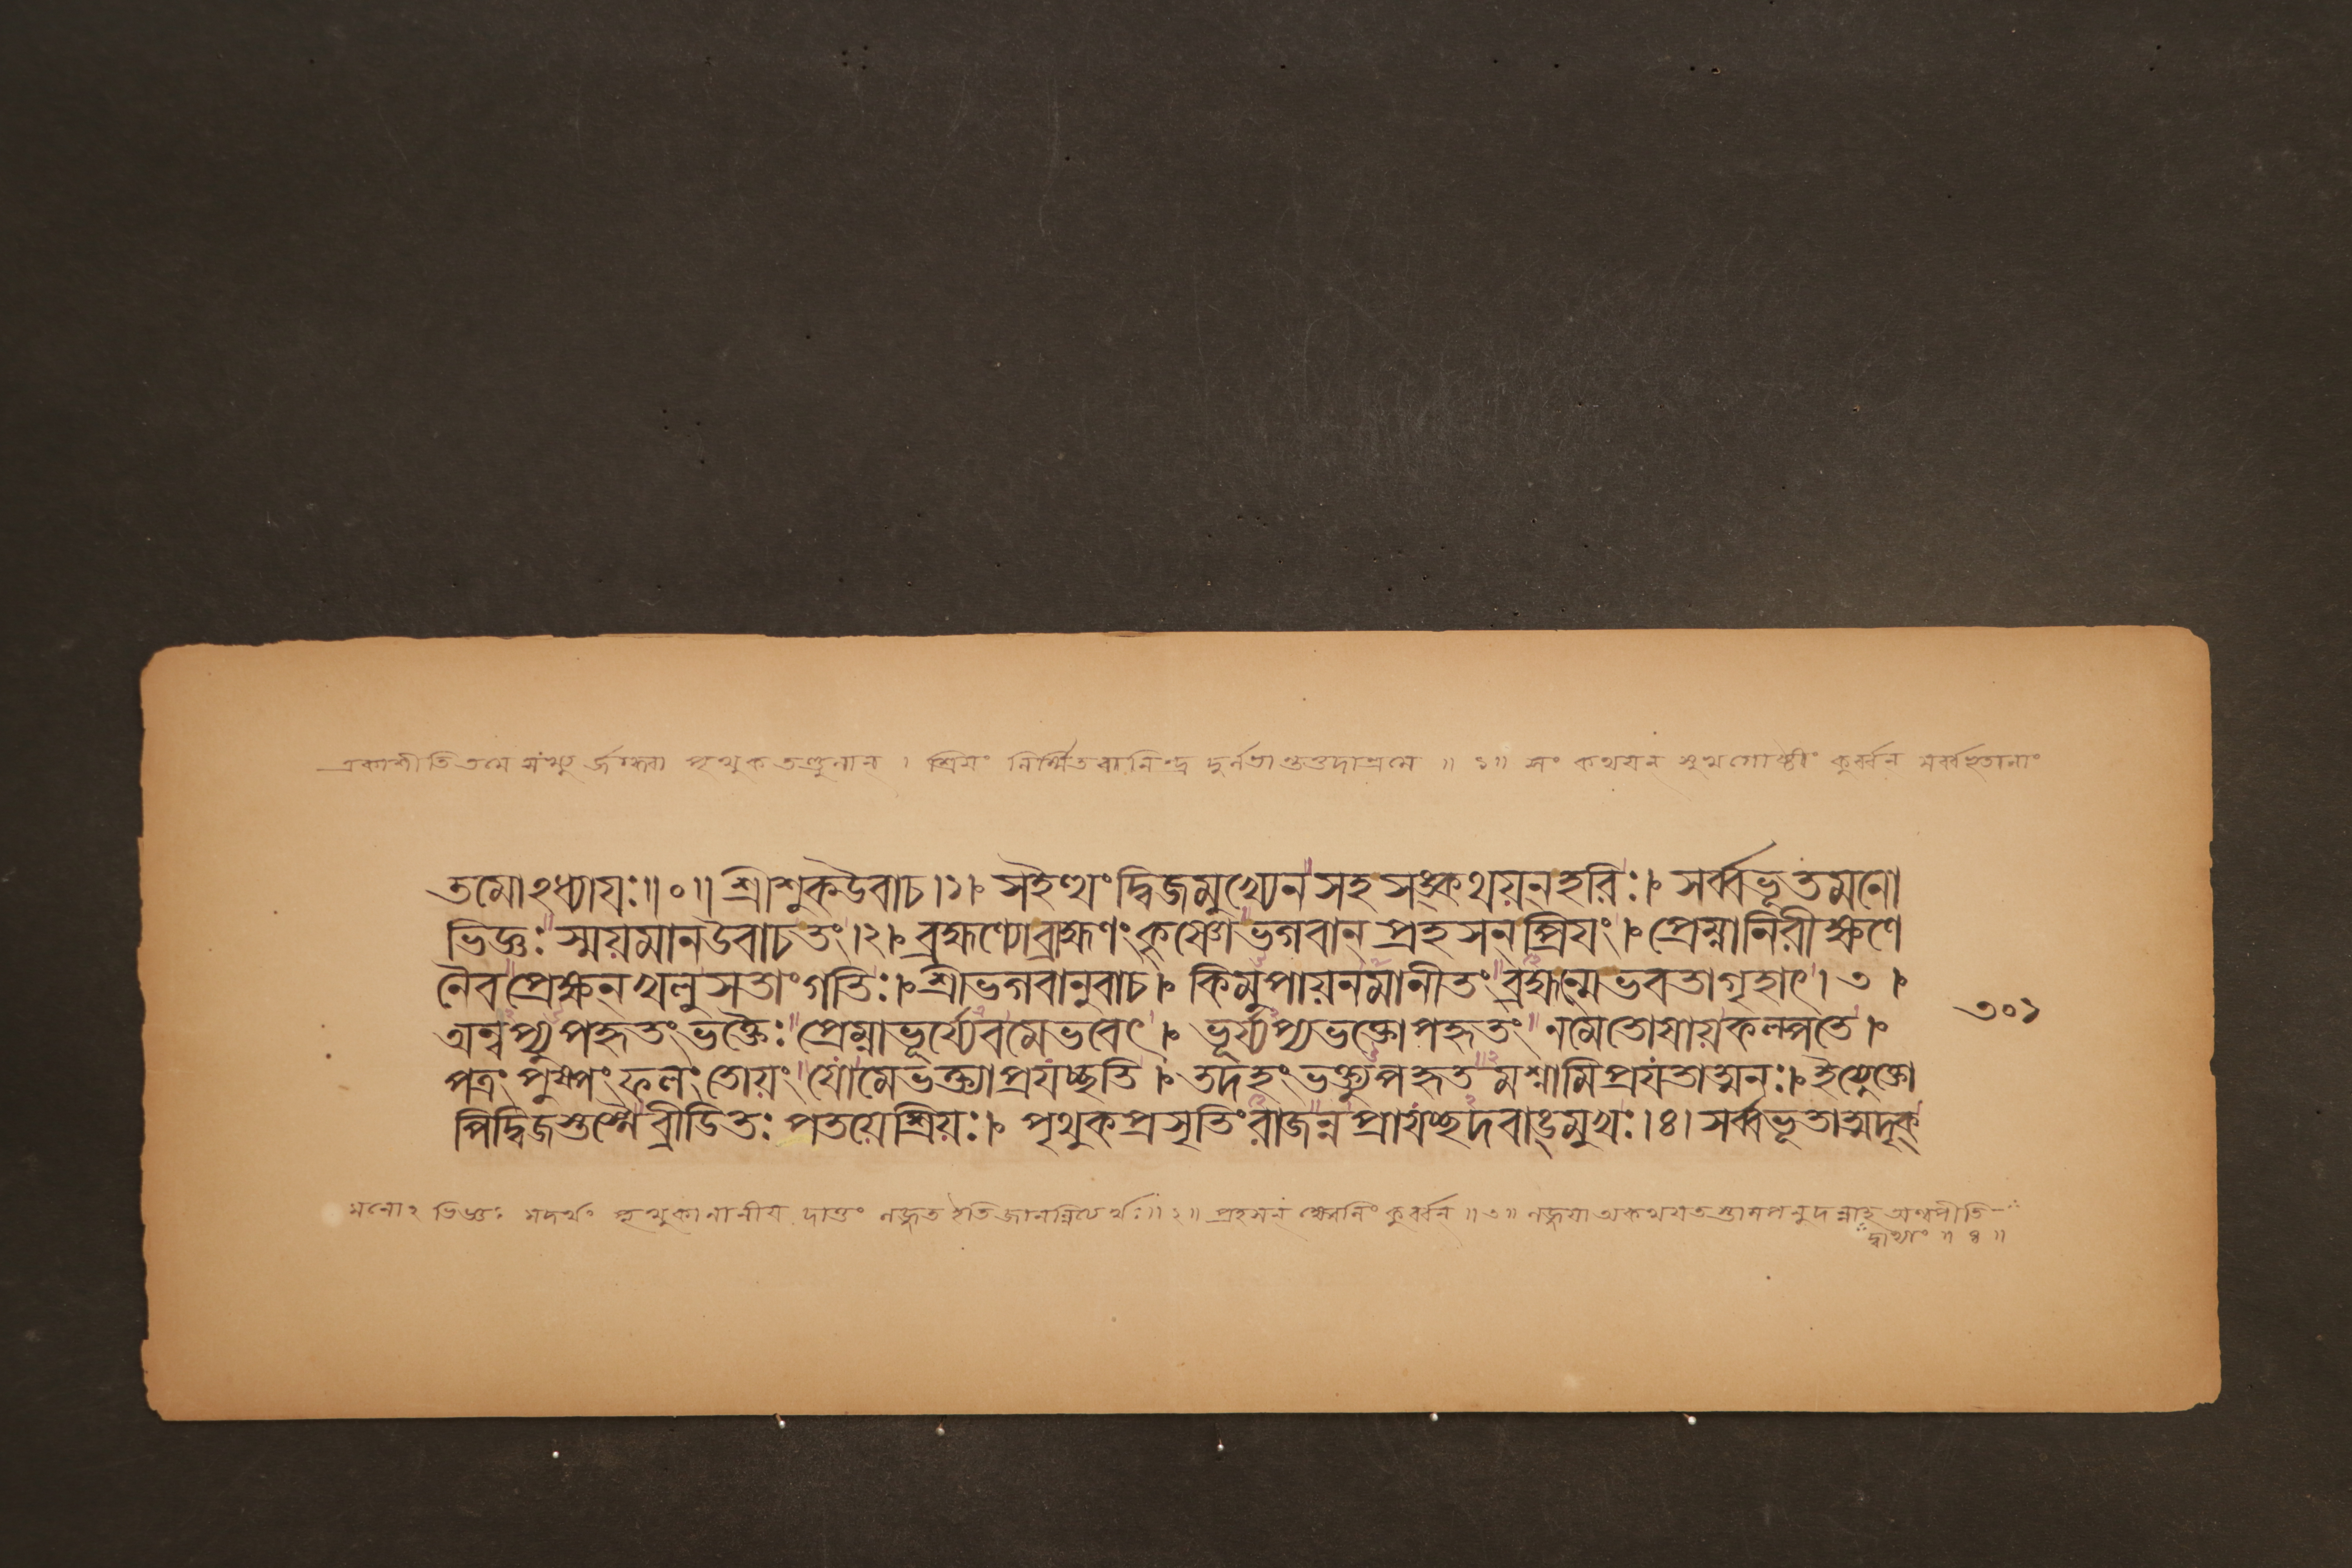 একাশীতিতমে সংখ্যুর্জগ্ধবা পৃথুকতণ্ডুলান । শ্রিয়ং নির্ম্মিতবানিন্দ্র দুর্লভাং তদাশ্রমে ॥ ১॥ সং কথয়ন সুখগোষ্ঠীং কুর্ব্বন সর্ব্বভূতানাং
তমোঽধ্যায়ঃ॥०॥ শ্রীশুকউবাচ।১।৮ সইত্থং দ্বিজমুখ্যেন সহ সঙ্কথয়ন্ হরিঃ।৮ সর্ব্বভূতমনো
ভিজ্ঞঃ স্ময়মানউবাচতং।২।৮ ব্রহ্মণ্যোব্রাহ্মণং কৃষ্ণোভগবান্ প্রহসন্প্রিয়ং।৮ প্রেম্নানিরীক্ষণে
নৈব প্রেক্ষন্ খলু সতাংগতিঃ।৮ শ্রীভগবানুবাচ।৮ কিমুপায়নমানীতং ব্রহ্মন্মেভবতাগৃহাৎ। ৩ ৮
অন্বপ্যুপহৃতং ভক্তৈঃ প্রেম্নাভূর্য্যেবমেভবেৎ।৮ ভূর্য্যপ্যভক্তোপহৃতং নমেতোষায়কল্পতে।৮
৩০১
পত্রং পুষ্পং ফলং তোয়ং যোমেভক্ত্যাপ্রযচ্ছতি।৮ তদহং ভক্ত্যুপহৃতমশ্নামিপ্রযতাত্মনঃ।৮ ইত্যুক্তো
পিদ্বিজস্তস্মৈ ব্রীডিতঃ পতয়েশ্রিয়ঃ।৮ পৃথুকপ্রসৃতিং রাজন্ন প্রাযচ্ছদবাঙ্মুখঃ।৪। সর্ব্বভূতাত্মদৃক্
মনোঽ ভিজ্ঞঃ মদর্থং পৃথুকানানীয় দাতুং লজ্জত ইতি জানন্নিত্যর্থঃ॥ ২॥ প্রহসনং ক্ষেলনিং কুর্ব্বন ॥ ৩॥ লজ্জয়াঅকথয়তস্তামপনুদন্নাহ অন্বপীতি—
দ্বাভ্যাং ॥ ৪ ॥